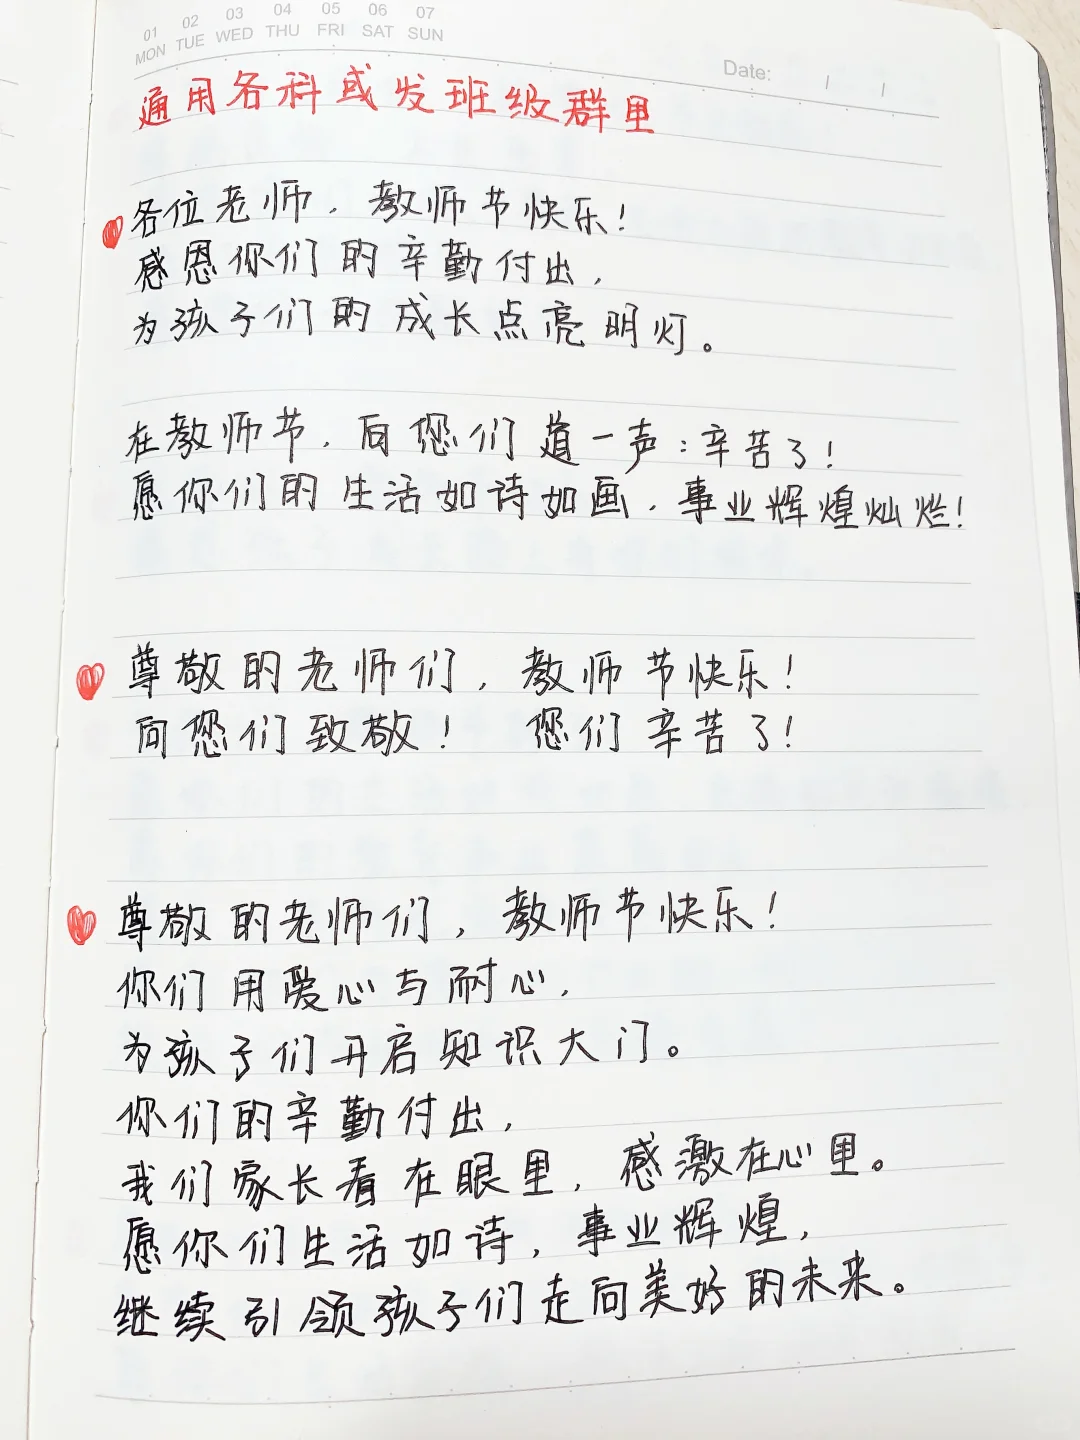 01 02 03 04 05 06 07
MON TUE WED THU FRI SAT SUN
Date: / /
通用各科或发班级群里
各位老师，教师节快乐！
感恩你们的辛勤付出，
为孩子们的成长点亮明灯。
在教师节，向您们道一声：辛苦了！
愿你们的生活如诗如画，事业辉煌灿烂！
尊敬的老师们，教师节快乐！
向您们致敬！ 您们辛苦了！
尊敬的老师们，教师节快乐！
你们用爱心与耐心，
为孩子们开启知识大门。
你们的辛勤付出，
我们家长看在眼里，感激在心里。
愿你们生活如诗，事业辉煌，
继续引领孩子们走向美好的未来。